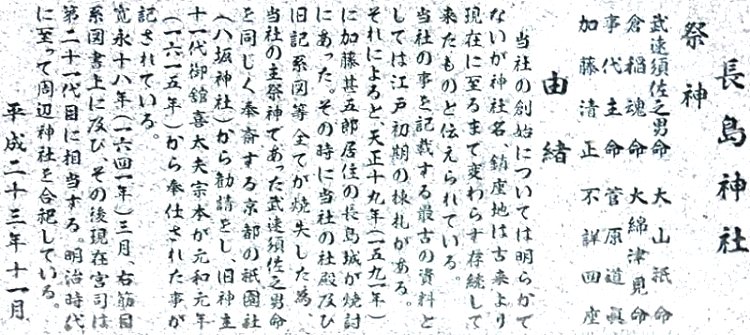 長島神社
祭神
武速須佐之男命 大山祇命
倉稲魂命 大綿津見命
事代主命 菅原道眞
加藤清正 不詳四座
由緒
当社の創始については明らかで
ないが神社名、鎮座地は古来より
現在に至るまで変わらず存続して
来たものと伝えられている。
当社の事を記載する最古の資料と
しては江戸初期の棟札がある。
それによると、天正十九年(一五九一年)
に加藤甚五郎居住の長島城が焼討
にあった。その時に当社の社殿及び
旧記系図等全てが焼失した為、
当社の主祭神であった武速須佐之男命
を同じく奉斎する京都の祇園社
(八坂神社)から勧請をし、旧神主
十一代御舘喜太夫宗本が元和元年
(一六一五年)から奉仕された事が
記されている。
寛永十八年(一六四一年)三月、右筋目
系図書上に及び、その後現在宮司は
第二十一代目に相当する。明治時代
に至って周辺神社を合祀している。
平成二十三年十一月